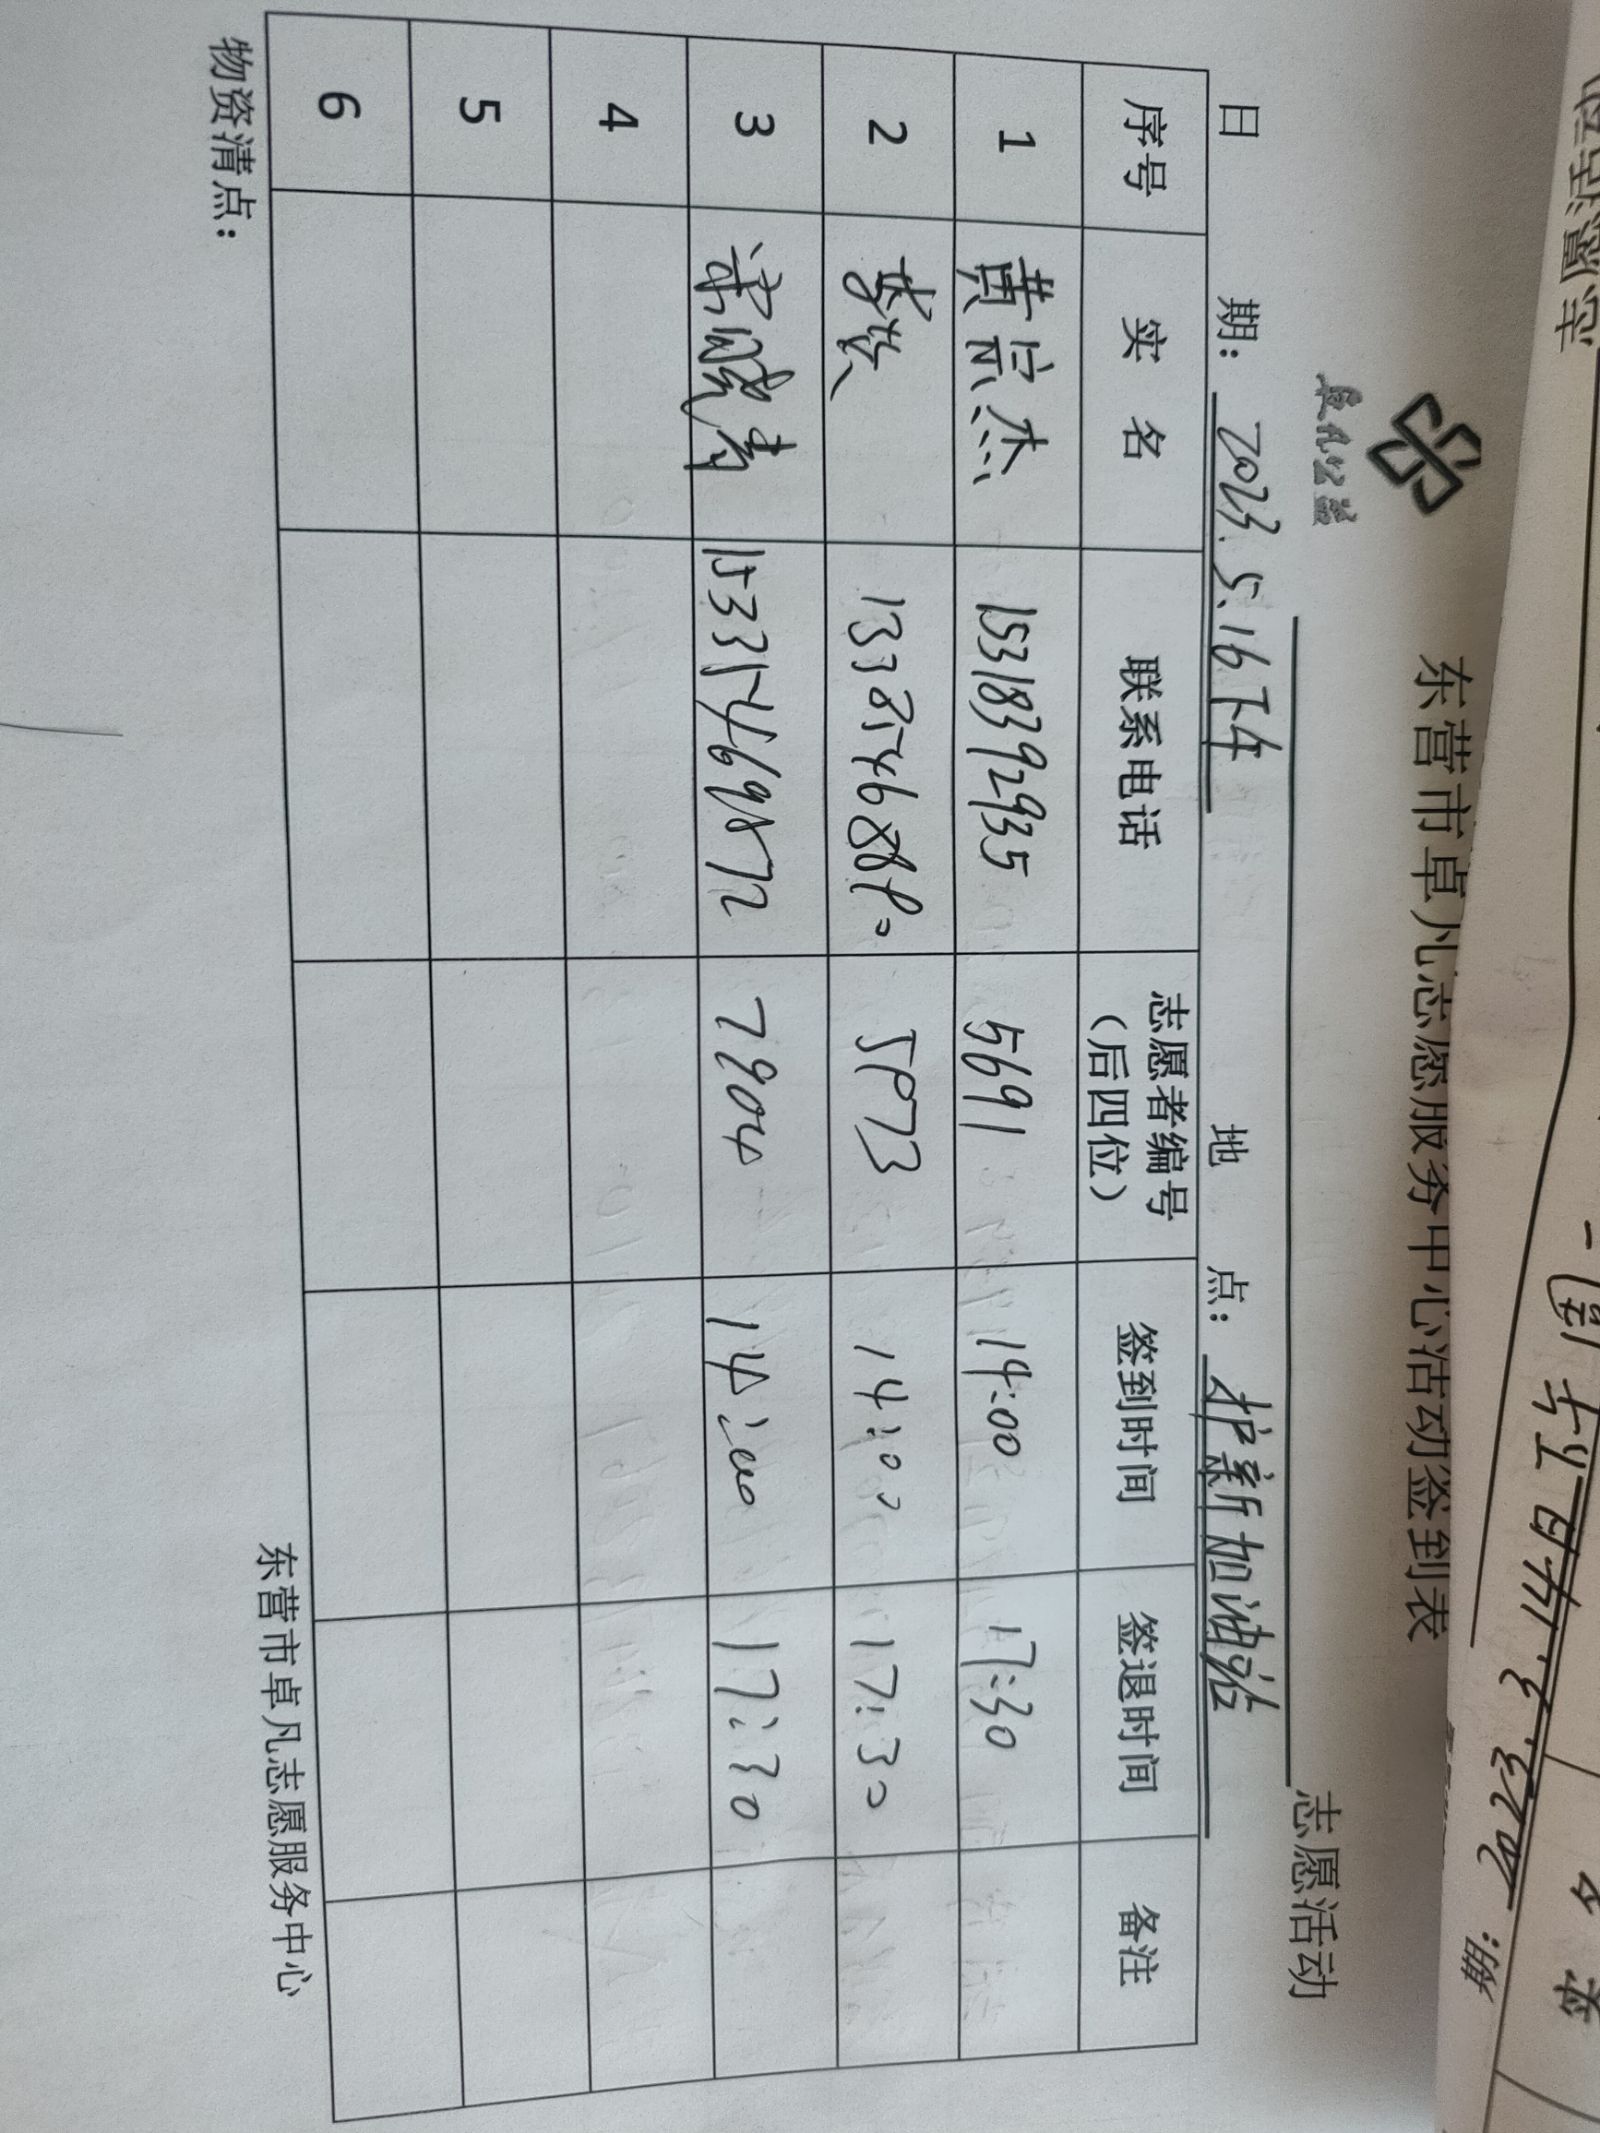 东营市卓凡志愿服务中心活动签到表
志愿活动
日 期：2023.5.16下午 地 点：护新加油站
序号 实 名 联系电话 志愿者编号（后四位） 签到时间 签退时间 备注
1 黄宗杰 15318392935 5691 14:00 17:30
2 5973 14:00 17:30
3 15331469872 7904 14:00 17:30
4
5
6
物资清点： 东营市卓凡志愿服务中心
2023.3.14
期：
志愿活动